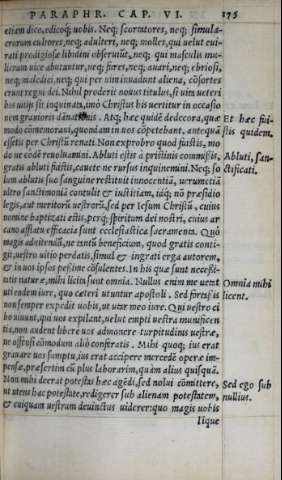 PARAPHR. CAP. VI. 175
etiam dico, edicoq́; uobis. Neq; scortatores, neq; simula-
crorum cultores, neq; adulteri, neq; molles, qui uelut eui-
rati prodigiosæ libidini obseruiūt, neq; qui masculis mu-
liebrium uice abutuntur, neq; fures, neq; auari, neq; ebriosi,
neq; maledici, neq; qui per uim inuadunt aliena, cōsortes
erunt regni dei. Nihil proderit nouus titulus, si uita ueteri
bus uitijs sit inquinata, imò Christus bis uertitur in occasio
nem grauioris dānationis. Atq; hæc quidē dedecora, quæ
modo cōmemoraui, quondam in uos cōpetebant, antequā
essetis per Christū renati. Non exprobro quod fuistis, mo
do ne eòdē reuoluamini. Abluti estis à pristinis commissis,
gratis abluti fuistis, cauete ne rursus inquinemini. Neq; so
lum ablutis suo sanguine restituit innocentiā, uerumetiā
ultro sanctimoniā contulit & iustitiam, idq́; nō præsidio
legis, aut meritorū uestrorū, sed per Iesum Christū, cuius
nomine baptizati estis, perq́; spiritum dei nostri, cuius ar
cano afflatu efficacia sunt ecclesiastica sacramenta. Quò
magis adnitendū, ne tantū beneficium, quod gratis conti-
git, uestro uitio perdatis, simul & ingrati erga autorem,
& in uos ipsos pessime cōsulentes. In his quæ sunt necessi-
tatis naturæ, mihi licita sunt omnia. Nullus enim me uetat
uti eodem iure, quo cæteri utuntur apostoli. Sed fortassis
non semper expedit uobis, ut utar meo iure. Qui uestro ci
bo uiuunt, qui uos expilant, uelut empti uestra munificen
tia, non audent libere uos admonere turpitudinis uestræ,
ne offensi cōmodum aliò conferatis. Mihi quoq; ius erat
grauare uos sumptu, ius erat accipere mercedē operæ im-
pensæ, præsertim cū plus laborarim, quàm alius quisquā.
Non mihi deerat potestas hæc agēdi, sed nolui cōmittere,
ut utens hac potestate, redigerer sub alienam potestatem,
& cuiquam uestram deuinctus uiderer: quo magis uobis
lique
Et hæc fui-
stis quidem.
Abluti, san-
ctificati.
Omnia mihi
licent.
Sed ego sub
nullius.